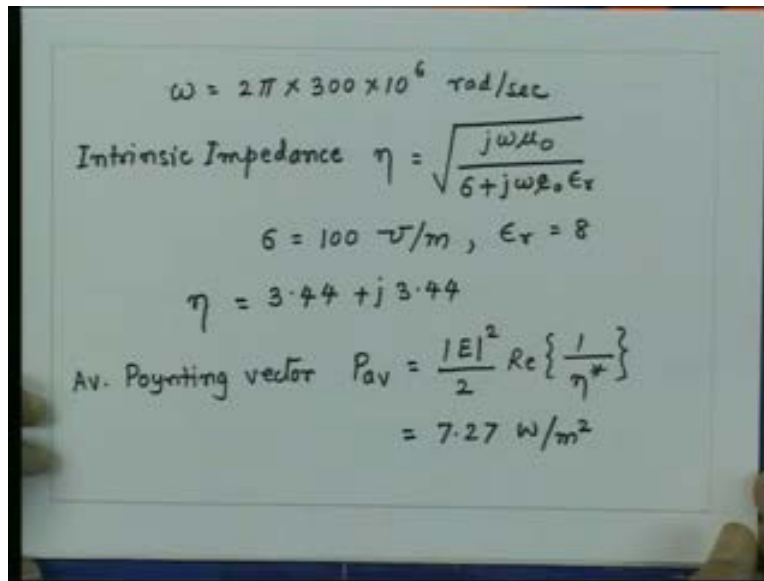 ω = 2π × 300 × 10⁶ rad/sec
Intrinsic Impedance η = √(jωμ₀ / (σ + jωε₀ εᵣ))
σ = 100 ℧/m , εᵣ = 8
η = 3.44 + j 3.44
Av. Poynting vector Pav = |E|²/2 Re{1/η*}
= 7.27 W/m²